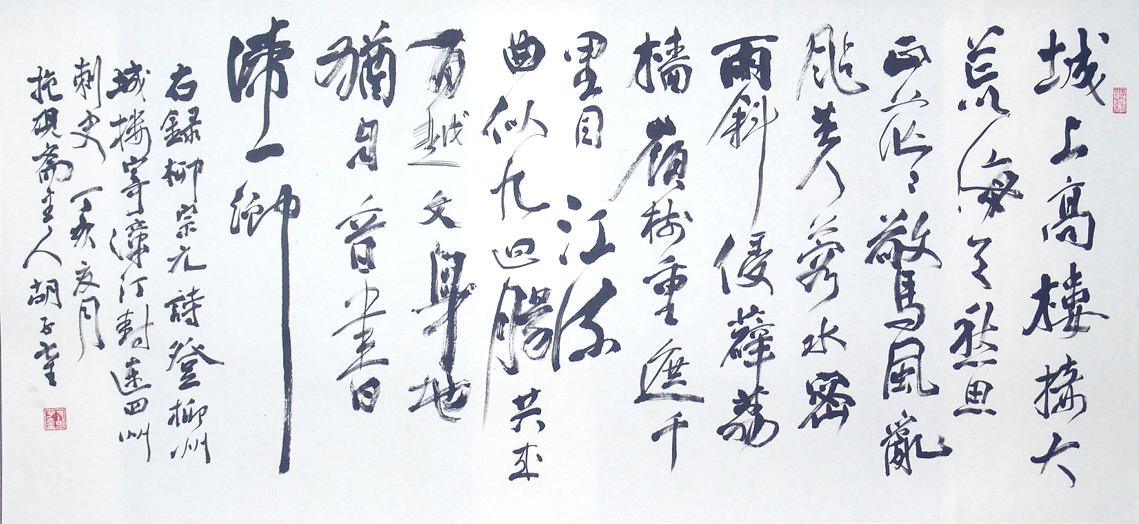 城上高樓接大
荒海天愁思
正茫々驚風亂
颭芙蓉水密
雨斜侵薜荔
墻嶺樹重遮千
里目江流
曲似九回腸共來
百越文身地
猶自音書
滯一鄉
右錄柳宗元詩登柳州
城樓寄漳汀封連四州
刺史丁亥夏月
硯齋主人胡子